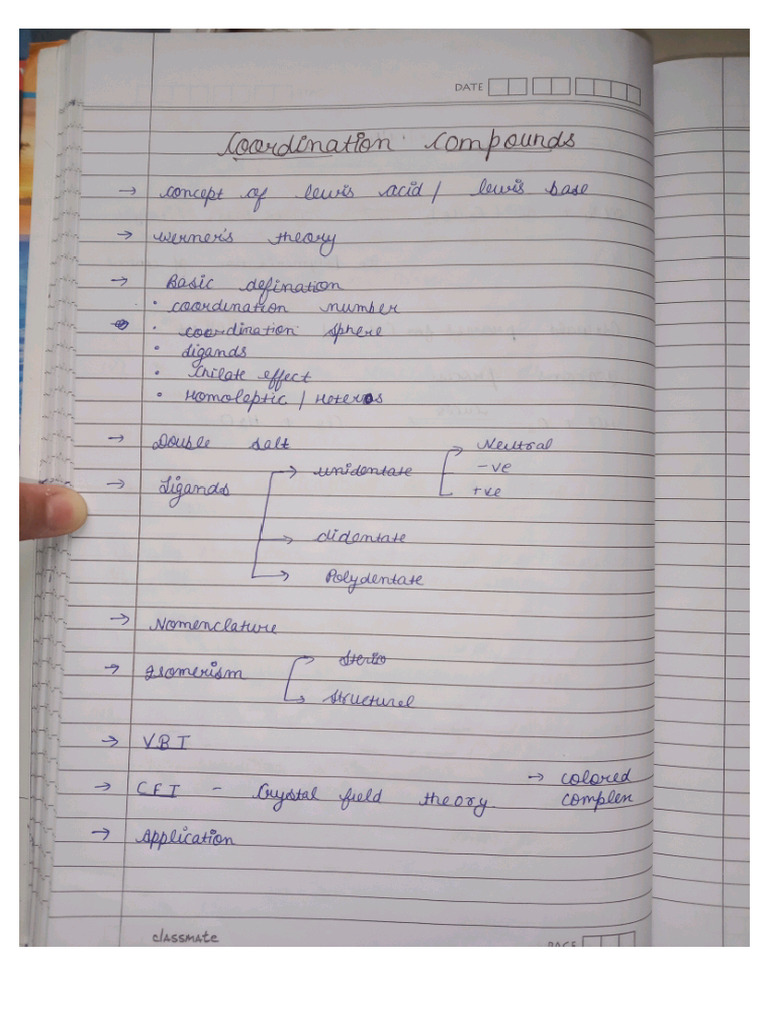 DATE
Coordination Compounds
→ concept of lewis acid / lewis base
→ Werner's theory
→ Basic defination
• coordination number
• coordination sphere
• Ligands
• Chilate effect
• Homoleptic / Heteros
→ Double salt
→ Ligands
→ unidentate
→ Neutral
-ve
+ve
→ didentate
→ Polydentate
→ Nomenclature
→ Isomerism
→ Sterio
→ Structurel
→ VBT
→ CFT - Crystal field theory → colored complex
→ Application
classmate
PAGE